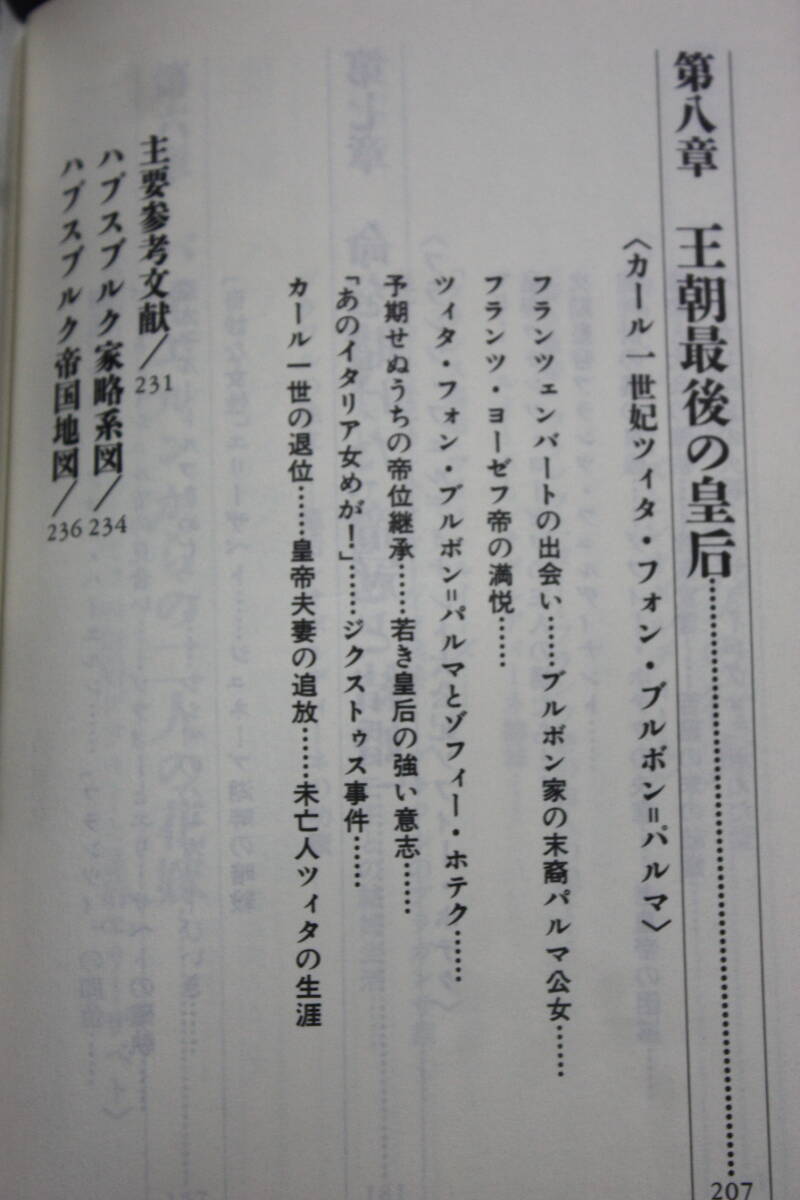 第八章　王朝最後の皇后……………………………207
〈カール一世妃ツィタ・フォン・ブルボン＝パルマ〉
フランツェンバートの出会い……ブルボン家の末裔パルマ公女……
フランツ・ヨーゼフ帝の満悦……
ツィタ・フォン・ブルボン＝パルマとゾフィー・ホテク……
予期せぬうちの帝位継承……若き皇后の強い意志……
「あのイタリア女めが！」……ジクストゥス事件……
カール一世の退位……皇帝夫妻の追放……未亡人ツィタの生涯
主要参考文献／231
ハプスブルク家略系図／234
ハプスブルク帝国地図／236